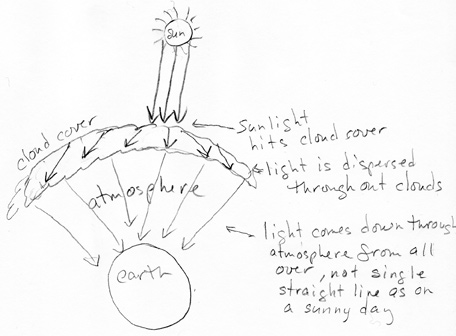 sun
cloud cover
sunlight
hits cloud cover
light is dispersed
throughout clouds
atmosphere
light comes down through
atmosphere from all
over, not single
straight line as on
a sunny day
earth